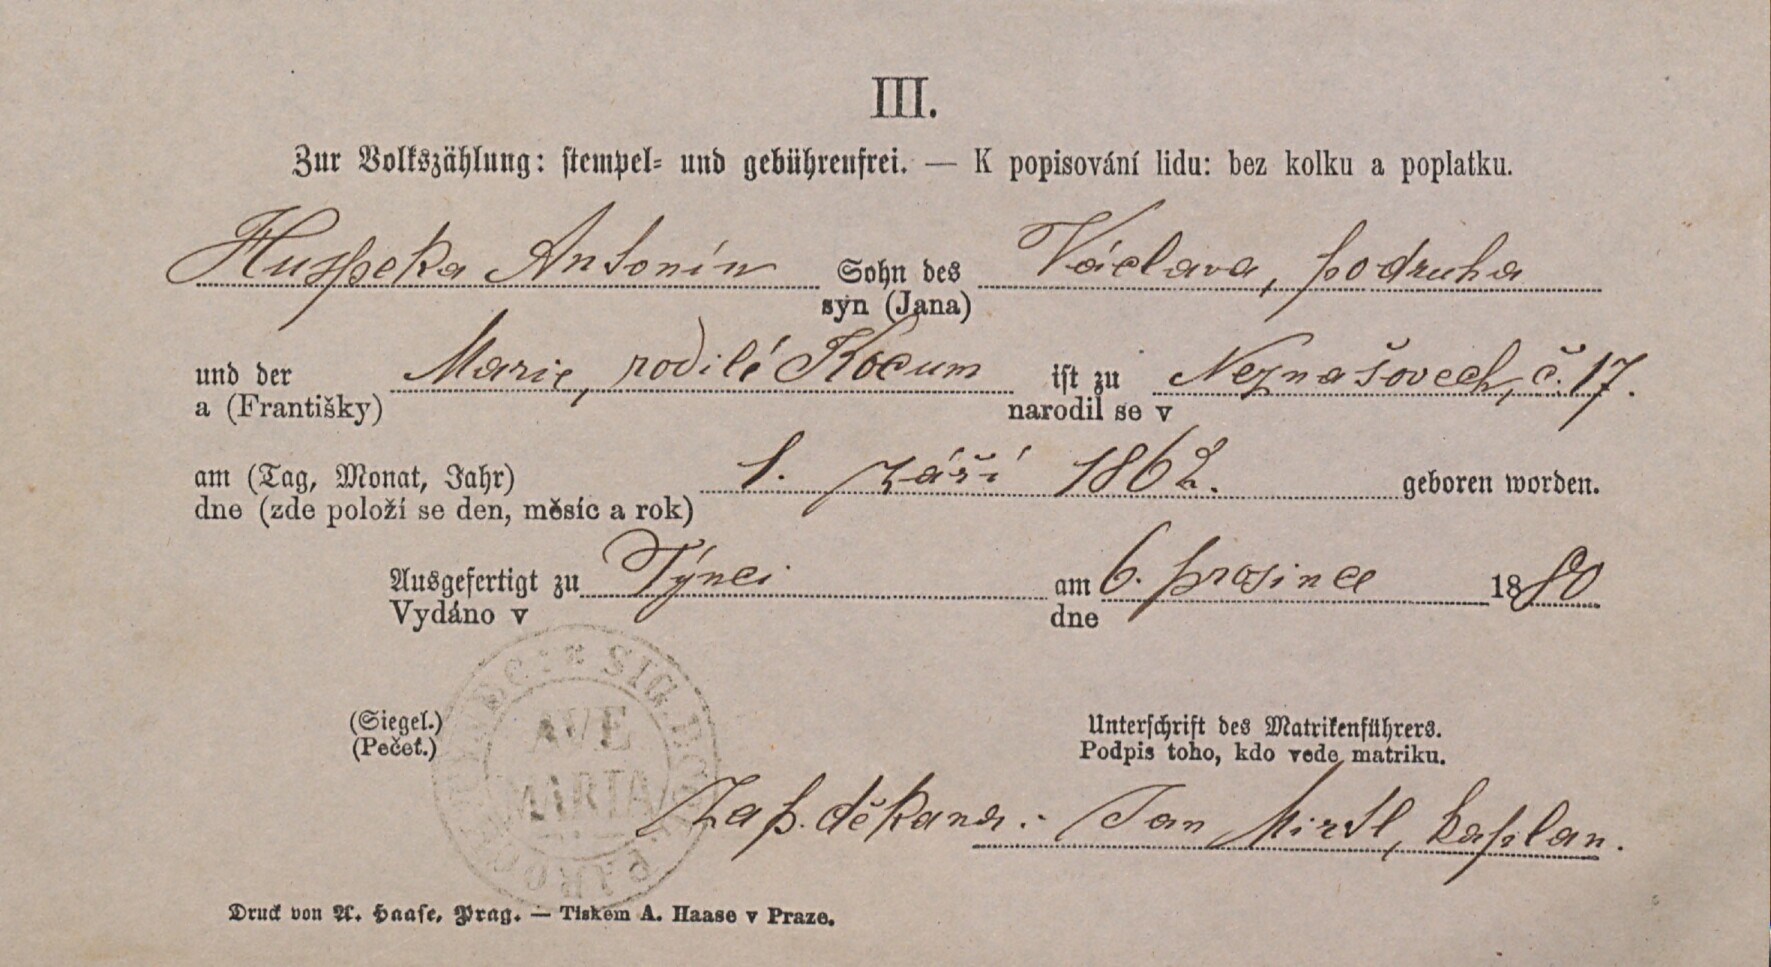 III.
Zur Volkszählung: stempel- und gebührenfrei. — K popisování lidu: bez kolku a poplatku.
Huspeka Antonín Sohn des Václava, podruha
syn (Jana)
und der Marie, rodilé Kocum ist zu Neznašovech, č. 17.
a (Františky) narodil se v
am (Tag, Monat, Jahr) 1. září 1862. geboren worden.
dne (zde položí se den, měsíc a rok)
Ausgefertigt zu Týnci am 6. prosince 1880
Vydáno v dne
(Siegel.) AVE Unterschrift des Matrikenführers.
(Pečeť.) MARIA Podpis toho, kdo vede matriku.
Za p. děkana: Jan Mirtl, kaplan.
Druck von A. Haase, Prag. — Tiskem A. Haase v Praze.